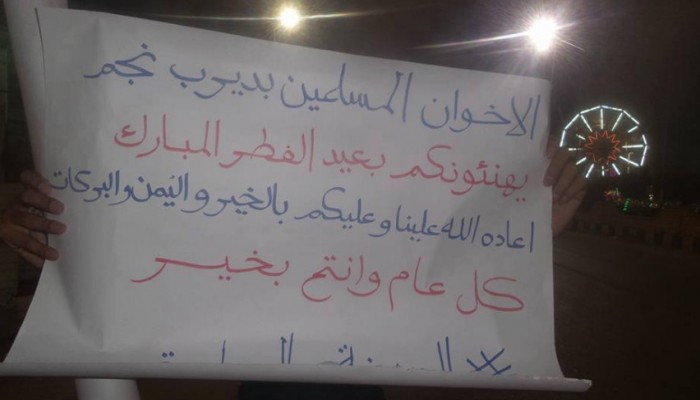 الاخوان المسلمين بديرب نجم
يهنئونكم بعيد الفطر المبارك
اعاده الله علينا وعليكم بالخير واليُمن والبركات
كل عام وانتم بخير